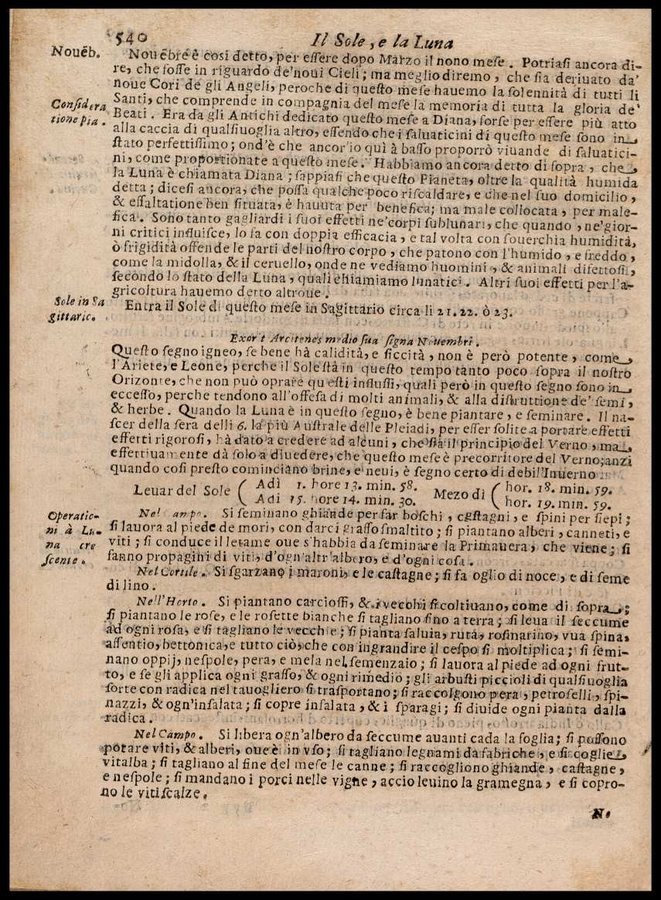 540
Il Sole, e la Luna
Nouẽb.
Nouẽbre è così detto, per essere dopo Marzo il nono mese. Potriasi ancora di-
re, che fosse in riguardo de'noui Cieli; ma meglio diremo, che sia deriuato da'
noue Cori de gli Angeli, peroche di questo mese hauemo la solennità di tutti li
Considera
tione pia.
Santi, che comprende in compagnia del mese la memoria di tutta la gloria de'
Beati. Era da gli Antichi dedicato questo mese a Diana, forse per essere più atto
alla caccia di qualsiuoglia altro, essendo che i saluaticini di questo mese sono in
stato perfettissimo; ond'è che ancor'io quì à basso proporrò viuande di saluatici-
ni, come proportionate a questo mese. Habbiamo ancora detto di sopra, che
la Luna è chiamata Diana; sappiasi che questo Pianeta, oltre la qualità humida
detta; dicesi ancora, che possa qualche poco riscaldare, e che nel suo domicilio,
& essaltatione ben situata, è hauuta per benefica; ma male collocata, per male-
fica. Sono tanto gagliardi i suoi effetti ne'corpi sublunari, che quando, ne'gior-
ni critici influisce, lo fa con doppia efficacia, e tal volta con souerchia humidità,
ò frigidità offende le parti del nostro corpo, che patono con l'humido, e freddo,
come la midolla, & il ceruello, onde ne vediamo huomini, & animali difettosi,
secondo lo stato della Luna, quali chiamiamo lunatici. Altri suoi effetti per l'a-
gricoltura hauemo detto altroue.
Sole in Sa
gittario.
Entra il Sole di questo mese in Sagittario circa li 21. 22. ò 23.
Exort Arcitenes medio sua signa Nouembri.
Questo segno igneo, se bene hà calidità, e siccità, non è però potente, come
l'Ariete, e Leone, perche il Sole stà in questo tempo tanto poco sopra il nostro
Orizonte, che non può oprare questi influssi, quali però in questo segno sono in
eccesso, perche tendono all'offesa di molti animali, & alla distruttione de'semi,
& herbe. Quando la Luna è in questo segno, è bene piantare, e seminare. Il na-
scer della sera delli 6. la più Australe delle Pleiadi, per esser solite a portare effetti
effetti rigorosi, hà dato a credere ad alcuni, che sia il principio del Verno, ma
effettiuamente dà solo a diuedere, che questo mese è precorritore del Verno; anzi
quando così presto cominciano brine, e neui, è segno certo di debil'Inuerno
Leuar del Sole ( Adì 1. hore 13. min. 58. Mezo dì ( hor. 18. min. 59.
Adì 15. hore 14. min. 30. hor. 19. min. 59.
Operatio-
ni à Lu-
na cre
scente.
Nel Campo. Si seminano ghiande per far boschi, castagni, e spini per siepi;
si lauora al piede de mori, con darci grasso smaltito; si piantano alberi, canneti, e
viti; si conduce il letame oue s'habbia da seminare la Primauera, che viene; si
fanno propagini di viti, d'ogn'altr'albero, e d'ogni cosa.
Nel Cortile. Si sgarzano i maroni, e le castagne; si fa oglio di noce, e di seme
di lino.
Nell'Horto. Si piantano carcioffi, & i vecchi si coltiuano, come di sopra;
si piantano le rose, e le rosette bianche si tagliano fino a terra; si leua il seccume
ad ogni rosa, e si tagliano le vecchie; si pianta saluia, ruta, rosmarino, vua spina,
assentio, bettonica, e tutto ciò, che con ingrandire il cespo si moltiplica; si semi-
nano oppij, nespole, pera, e mela nel semenzaio; si lauora al piede ad ogni frut-
to, e se gli applica ogni grasso, & ogni rimedio; gli arbusti piccioli di qualsiuoglia
sorte con radica nel tauogliero si trasportano; si raccolgono pera, petroselli, spi-
nazzi, & ogn'insalata; si copre insalata, & i sparagi; si diuide ogni pianta dalla
radica.
Nel Campo. Si libera ogn'albero da seccume auanti cada la foglia; si possono
potare viti, & alberi, oue è in vso; si tagliano legnami da fabriche, e si coglie
vitalba; si tagliano al fine del mese le canne; si raccogliono ghiande, castagne,
e nespole; si mandano i porci nelle vigne, acciò leuino la gramegna, e si copro-
no le viti scalze.
N.